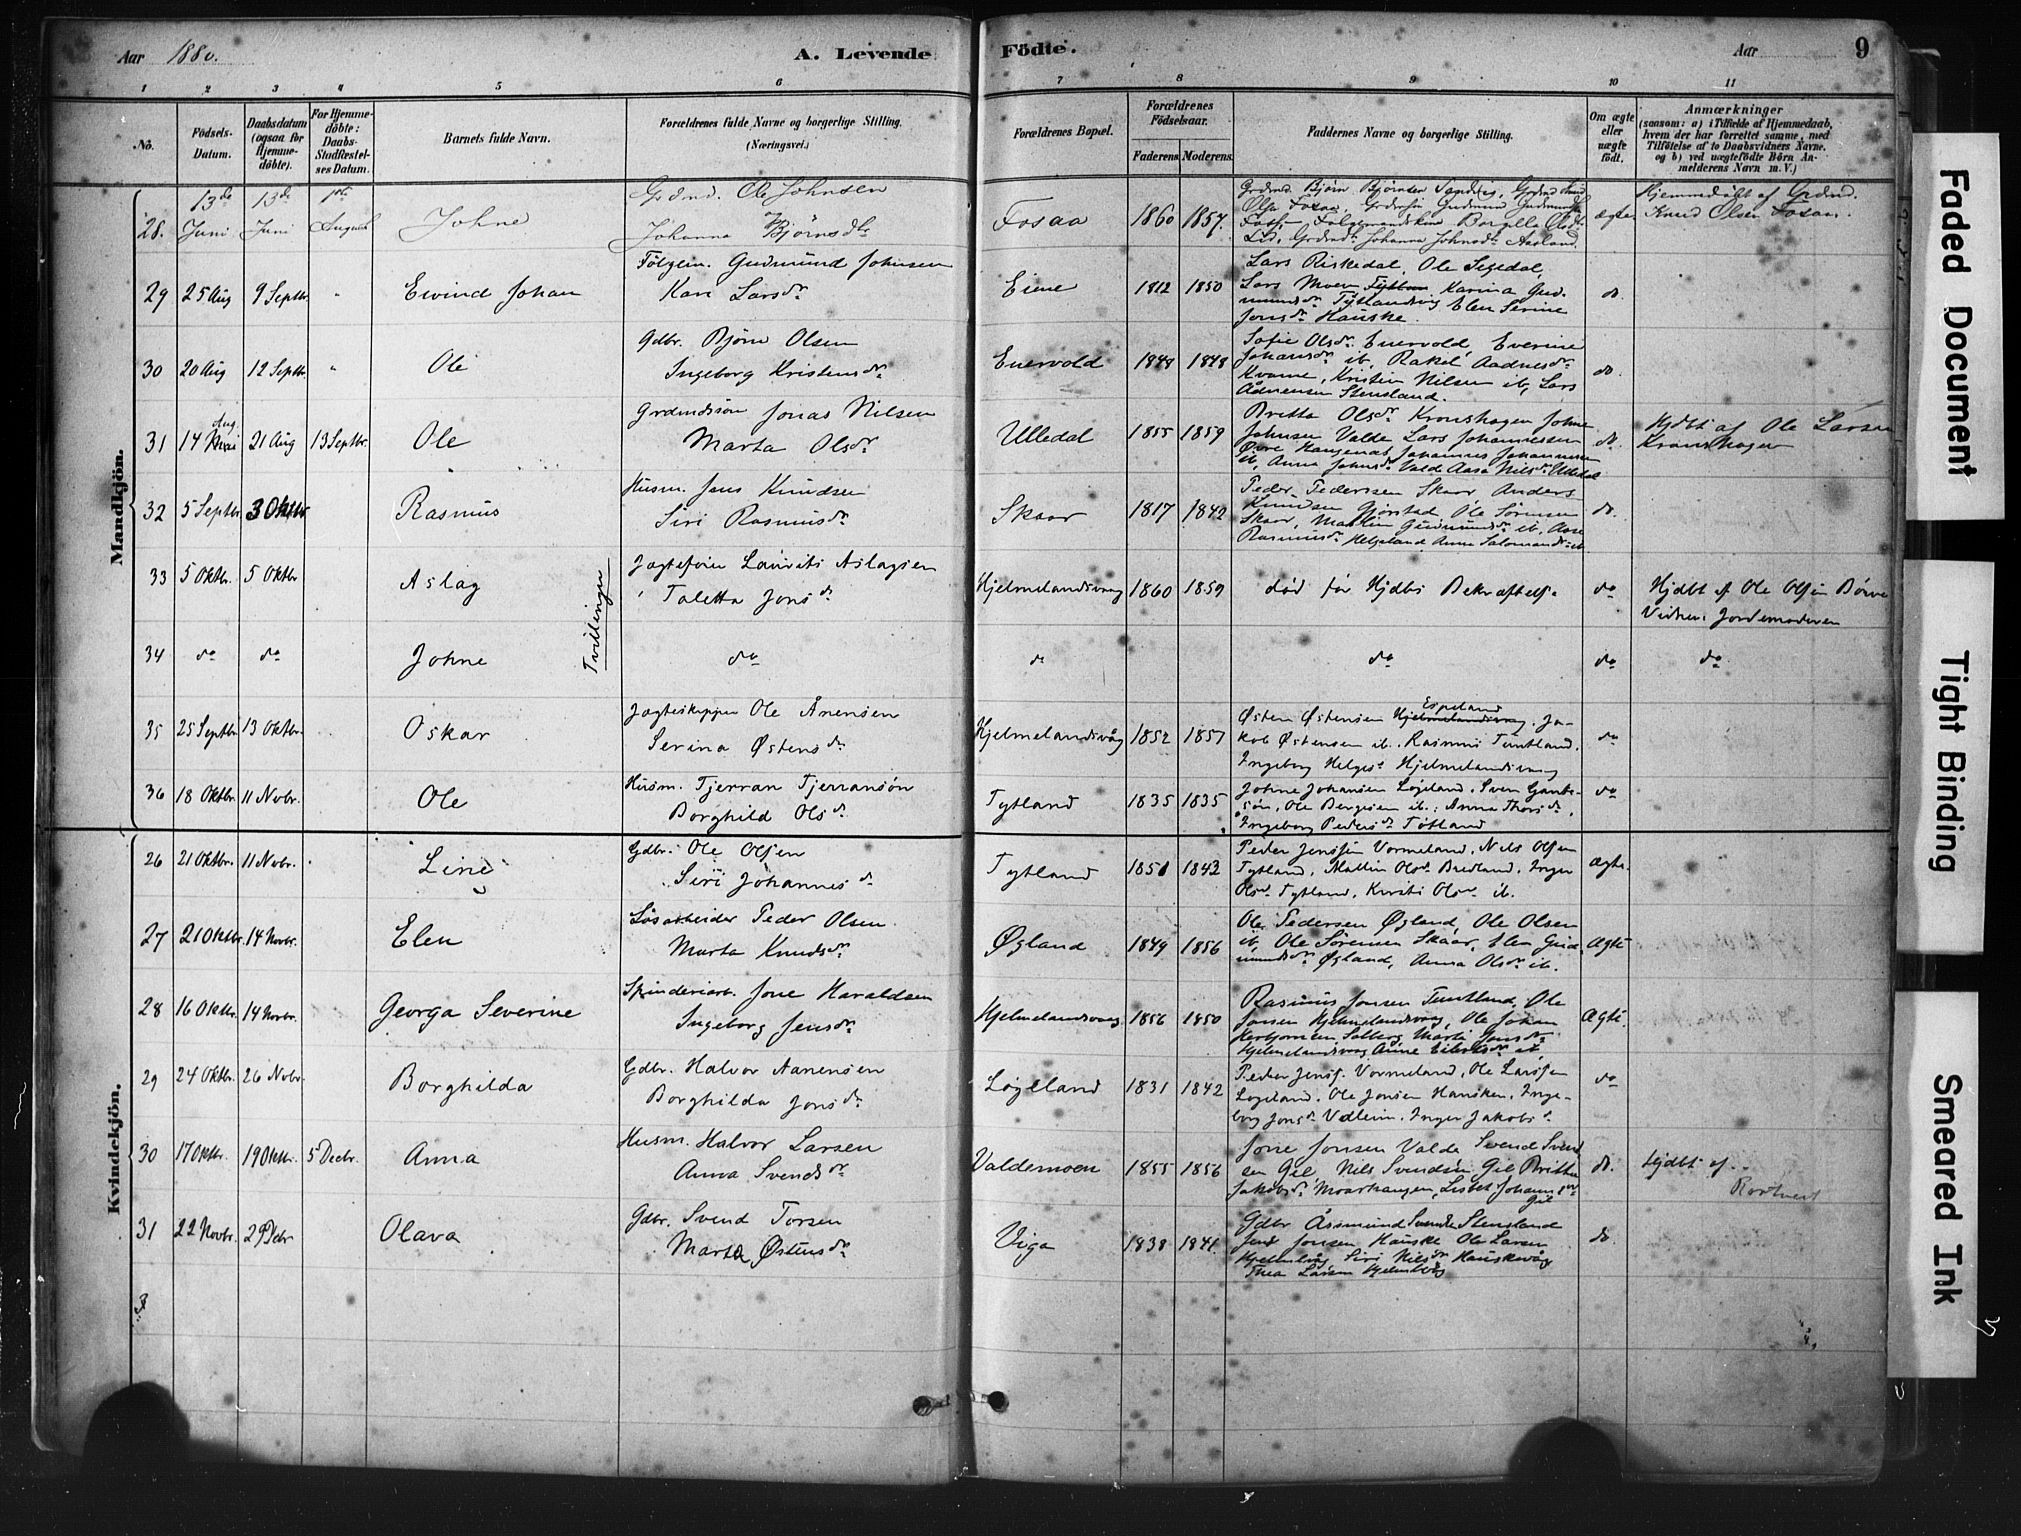 Aar 1880.
A. Levende
Födte.
Aar
9
1 2 3 4 5 6 7 8 9 10 11
No.
Födsels-Datum.
Daabsdatum (ogsaa for Hjemme-döbte).
For Hjemme-döbte: Daabs-Stadfæstel-ses Datum.
Barnets fulde Navn.
Forældrenes fulde Navne og borgerlige Stilling. (Næringsvei.)
Forældrenes Bopæl.
Forældrenes Födselsaar.
Faderens Moderens
Faddernes Navne og borgerlige Stilling.
Om ægte eller uægte födt.
Anmærkninger
(saasom: a) i Tilfælde af Hjemmedaab, hvem der har forrettet samme, med Tilföielse af to Daabsvidners Navne. og b) ved uægtefödte Börn An-melderens Navn m. V.)
Mandkjön.
28. 13de Juni 13de Juni 1ste August Johne
Grdmd. Ole Johnsen
Johanna Björnsdtr
Fosaa 1860 1857.
Grdmd. Björn Björnsen
Johanna Johnsdtr Aasland.
ægte
Hjemmedöbt af Grdmd.
Knud Olsen Fosaa.
29 25 Aug 9 Septbr. " Eivind Johan
Fölgem. Gudmund Johnsen
Kari Larsdr
Eiene 1812 1850
Lars Riskedal, Ole Segedal,
Lars Moen Karina Gud-
mundsdr Tytlandsvig Elen Serine
Jonsdr Hauske.
do.
30 20 Aug 12 Septbr. " Ole
Gdbr. Björn Olsen
Ingeborg Kristensdr
Enervold 1848 1848
Sofie Olsdr Enervold Everine
Johansdr ib, Rakel Aadnesdr
Kvame, Kristen Nilsen ib, Lars
Ådnensen Stensland.
do.
31 14 Aug. 21 Aug 13 Septbr. Ole
Grdmdssön Jonas Nilsen
Marta Olsdr
Ulledal 1855 1859
Britta Olsdr Kronshagen Johne
Johnsen Valde Lars Johannessen
Øvre Haugenas, Johannes Johannessen
ib, Anna Johnsdr Valde Aasa Nilsdr Ulledal
do.
Hjdbt af Ole Larsen
Kronshagen
32 5 Septbr. 3 Oktbr Rasmus
Husm. Jens Knudsen
Siri Rasmusdr
Skaar 1817 1842
Peder Pedersen Skaar Anders
Knudsen Gjörstad Ole Sörensen
Skaar, Gudmundsdr ib, Aase
Rasmusdr Helgeland Anna Salomonsdr ib
do.
33 5 Oktbr. 5 Oktbr Aslag
Tvillinger
Jagteförer Laurits Aslagsen
Taletta Jonsdr
Hjelmelandsvaag 1860 1859
död før Hjdbs Bekræftelse
do
Hjdbt af Ole Olsen Börve
Vidner: Jordemoderen
34 do do Johne do do do do do
35 25 Septbr 13 Oktbr. Oskar
Jagteskipper Ole Ånensen
Serina Østensdr
Hjelmelandsvåg 1852 1857
Espeland
Østen Østensen Hjelmelandsvaag, Ja-
kob Østensen ib. Rasmus Tuntland,
Ingeborg Helgesd Hjelmelandsvaag
do
36 18 Oktbr. 11 Novbr. Ole
Husm. Tjerran Tjerransön
Borghild Olsdr
Tytland 1835 1835
Johne Johansen Løgeland, Sven Gaute-
sön, Ole Bergesen ib.; Anna Thorsdr,
Ingeborg Pedersdr Tötland
do
Kvindekjön.
26 21 Oktbr. 11 Novbr. Line
Gdbr. Ole Olsen
Siri Johannesdr
Tytland 1851 1843
Peder Jenssen Vormeland, Nils Olsen
Tytland, Mallin Olsd Bredland, Inger
Olsd Tytland, Kirsti Olsd ib.
Ægte.
27 21 Oktbr. 14 Novbr. Elen
Løsarbeider Peder Olsen
Marta Knudsdr
Øgland 1849 1856
Ole Pedersen Øgland, Ole Olsen
ib, Ole Sörensen Skaar, Elen Gud-
mundsdr Øgland, Anna Olsdr ib.
Ægte
28 16 Oktbr. 14 Novbr. Georga Severine
Spinderiarb. Jone Haraldsen
Ingeborg Jensdr
Hjelmelandsvaag 1856 1850
Rasmus Jonsen Tuntland, Ole
Jonsen Hjelmelandsvaag, Ole Johan
Herbjornsen Solberg, Marta Jonsdr
Hjelmelandsvaag Anne Eilertsdr ib
Ægte.
29 24 Oktbr. 26 Novbr. Borghilda
Gdbr. Halvor Aanensen
Borghilda Jonsdr
Løgeland 1831 1842
Peder Jenss. Vormeland, Ole Larssen
Løgeland, Ole Jonsen Hausken, Inge-
borg Jonsd Vdleim, Inger Jakobsd
do
30 17 Oktbr. 19 Oktbr. 5 Decbr. Anna
Husm. Halvor Larsen
Anna Svendsdr
Valdemoen 1855 1856
Jone Jonsen Valde Svend Svend
en Gil, Nils Svendsen Gil Britha
Jakobsdr Moarhaugen, Lisbet Johannesdr
Gil
do.
Hjdbt af
31 22 Novbr. 29 Debr Olava
Gdbr. Svend Torsen
Marta Østensdr
Viga 1838 1841.
Gdbr Åsmund Svendse Stensland
Jens Jonsen Hauske Ole Larsen
Hjelmelvåg, Siri Nilsdr Hauskevåg
Thea Larsen Hjelmelvåg
do.
Faded Document
Tight Binding
Smeared Ink